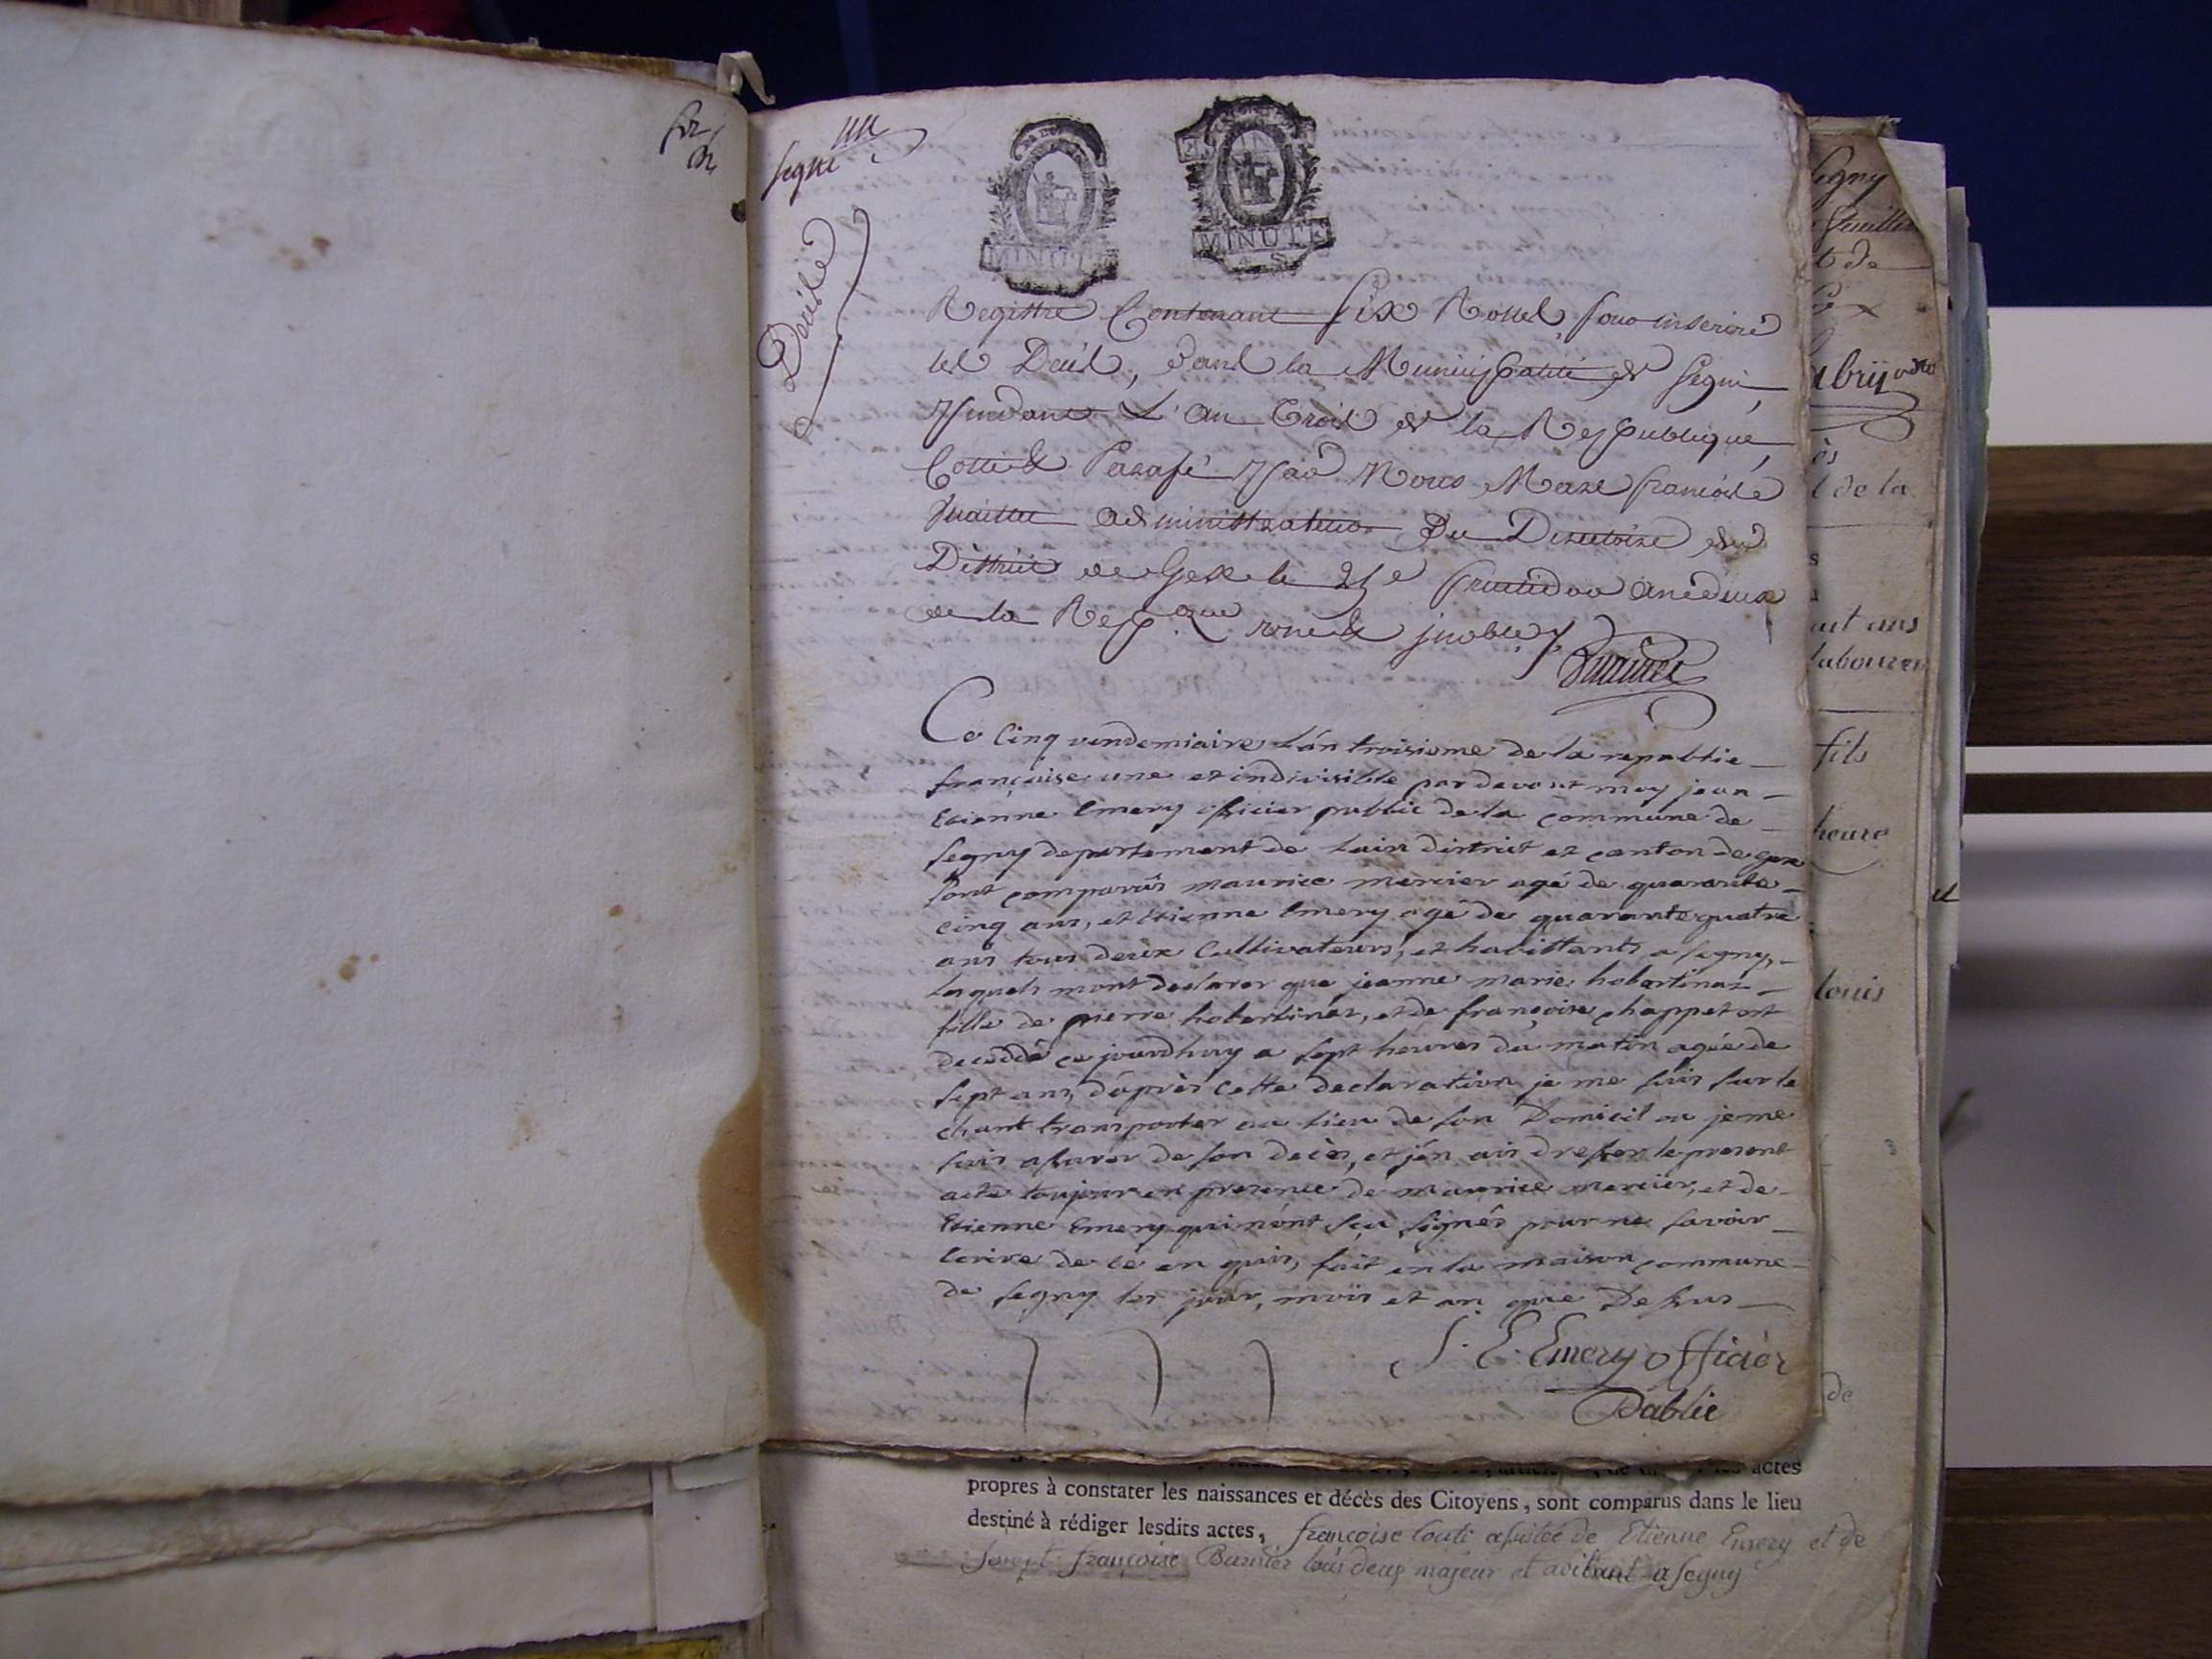 six
un
segni
Décès
MINUTE
MINUTE
4. S.
Registre Contenant six Rolles pour inscrire
les Décès, dans la Municipalité de Segni,
Pendant L'an trois de la Republique,
Cotté & Parafé Par Nous Marc François
administrateur Du Directoire du
District de Gex le fructidor an deux
de la Rep.que une & ind.ble
Ce Cinq vendemiaire l'an troisieme de la republic
françaises une et indivisible par devant moy jean
Etienne Emery officier public de la commune de
Segny departement de Lain district et canton de gex
sont comparus maurice mercier agé de quarante
cinq ans, et Etienne Emery agé de quarante quatre
ans tous deux Cultivateurs, et havittants a segny,
lesquels mont declarer que jeanne marie hobertinaz
fille de pierre hobertinaz, et de françoise chappet est
decedde ce jourdhuy a sept heures du matin agée de
sept ans, d'après cette declaration je me suis sur le
chant transporter au lieu de son Domicil ou je me
suis assurer de son decès, et j'en ais dresser le present
acte toujour en presence de maurice mercier, et de
Etienne Emery qui n'ont sçu signés pour ne savoir
Ecrire de ce en quis, fait en la maison commune
de segny les jour, mois et an que Dessus
J. E. Emery officier
Public
actes
propres à constater les naissances et décès des Citoyens, sont comparus dans le lieu
destiné à rédiger lesdits actes, françoise Couti asistée de Etienne Emery et de
françoise Barnier tous deux majeur et a segny
Segny
feuillet
t de
ès
t de la
s
uit ans
laboureur
fils
heure
louis
de